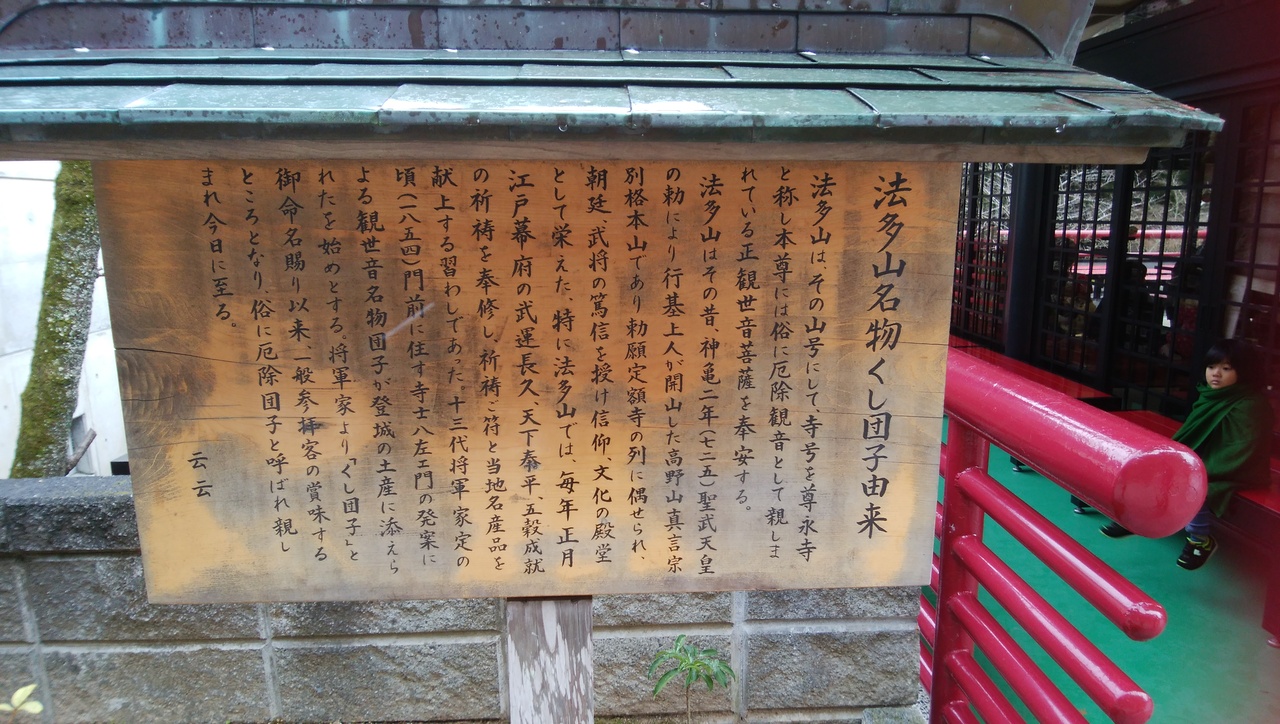 法多山名物くし団子由来
法多山は、その山号にして、寺号を尊永寺
と称し本尊には俗に厄除観音として親しま
れている正観世音菩薩を奉安する。
法多山はその昔、神亀二年(七二五)聖武天皇
の勅により行基上人が開山した高野山真言宗
別格本山であり勅願定額寺の列に偶せられ、
朝廷、武将の篤信を授け信仰、文化の殿堂
として栄えた、特に法多山では、毎年正月
江戸幕府の武運長久、天下泰平、五穀成就
の祈祷を奉修し、祈祷ご符と当地名産品を
献上する習わしてあった。十三代将軍家定の
頃(一八五四)門前に住す寺士八左ェ門の発案に
よる観世音名物団子が登城の土産に添えら
れたを始めとする。将軍家より「くし団子」と
御命名賜り以来、一般参拝客の賞味する
ところとなり、俗に厄除団子と呼ばれ親し
まれ今日に至る。
云云